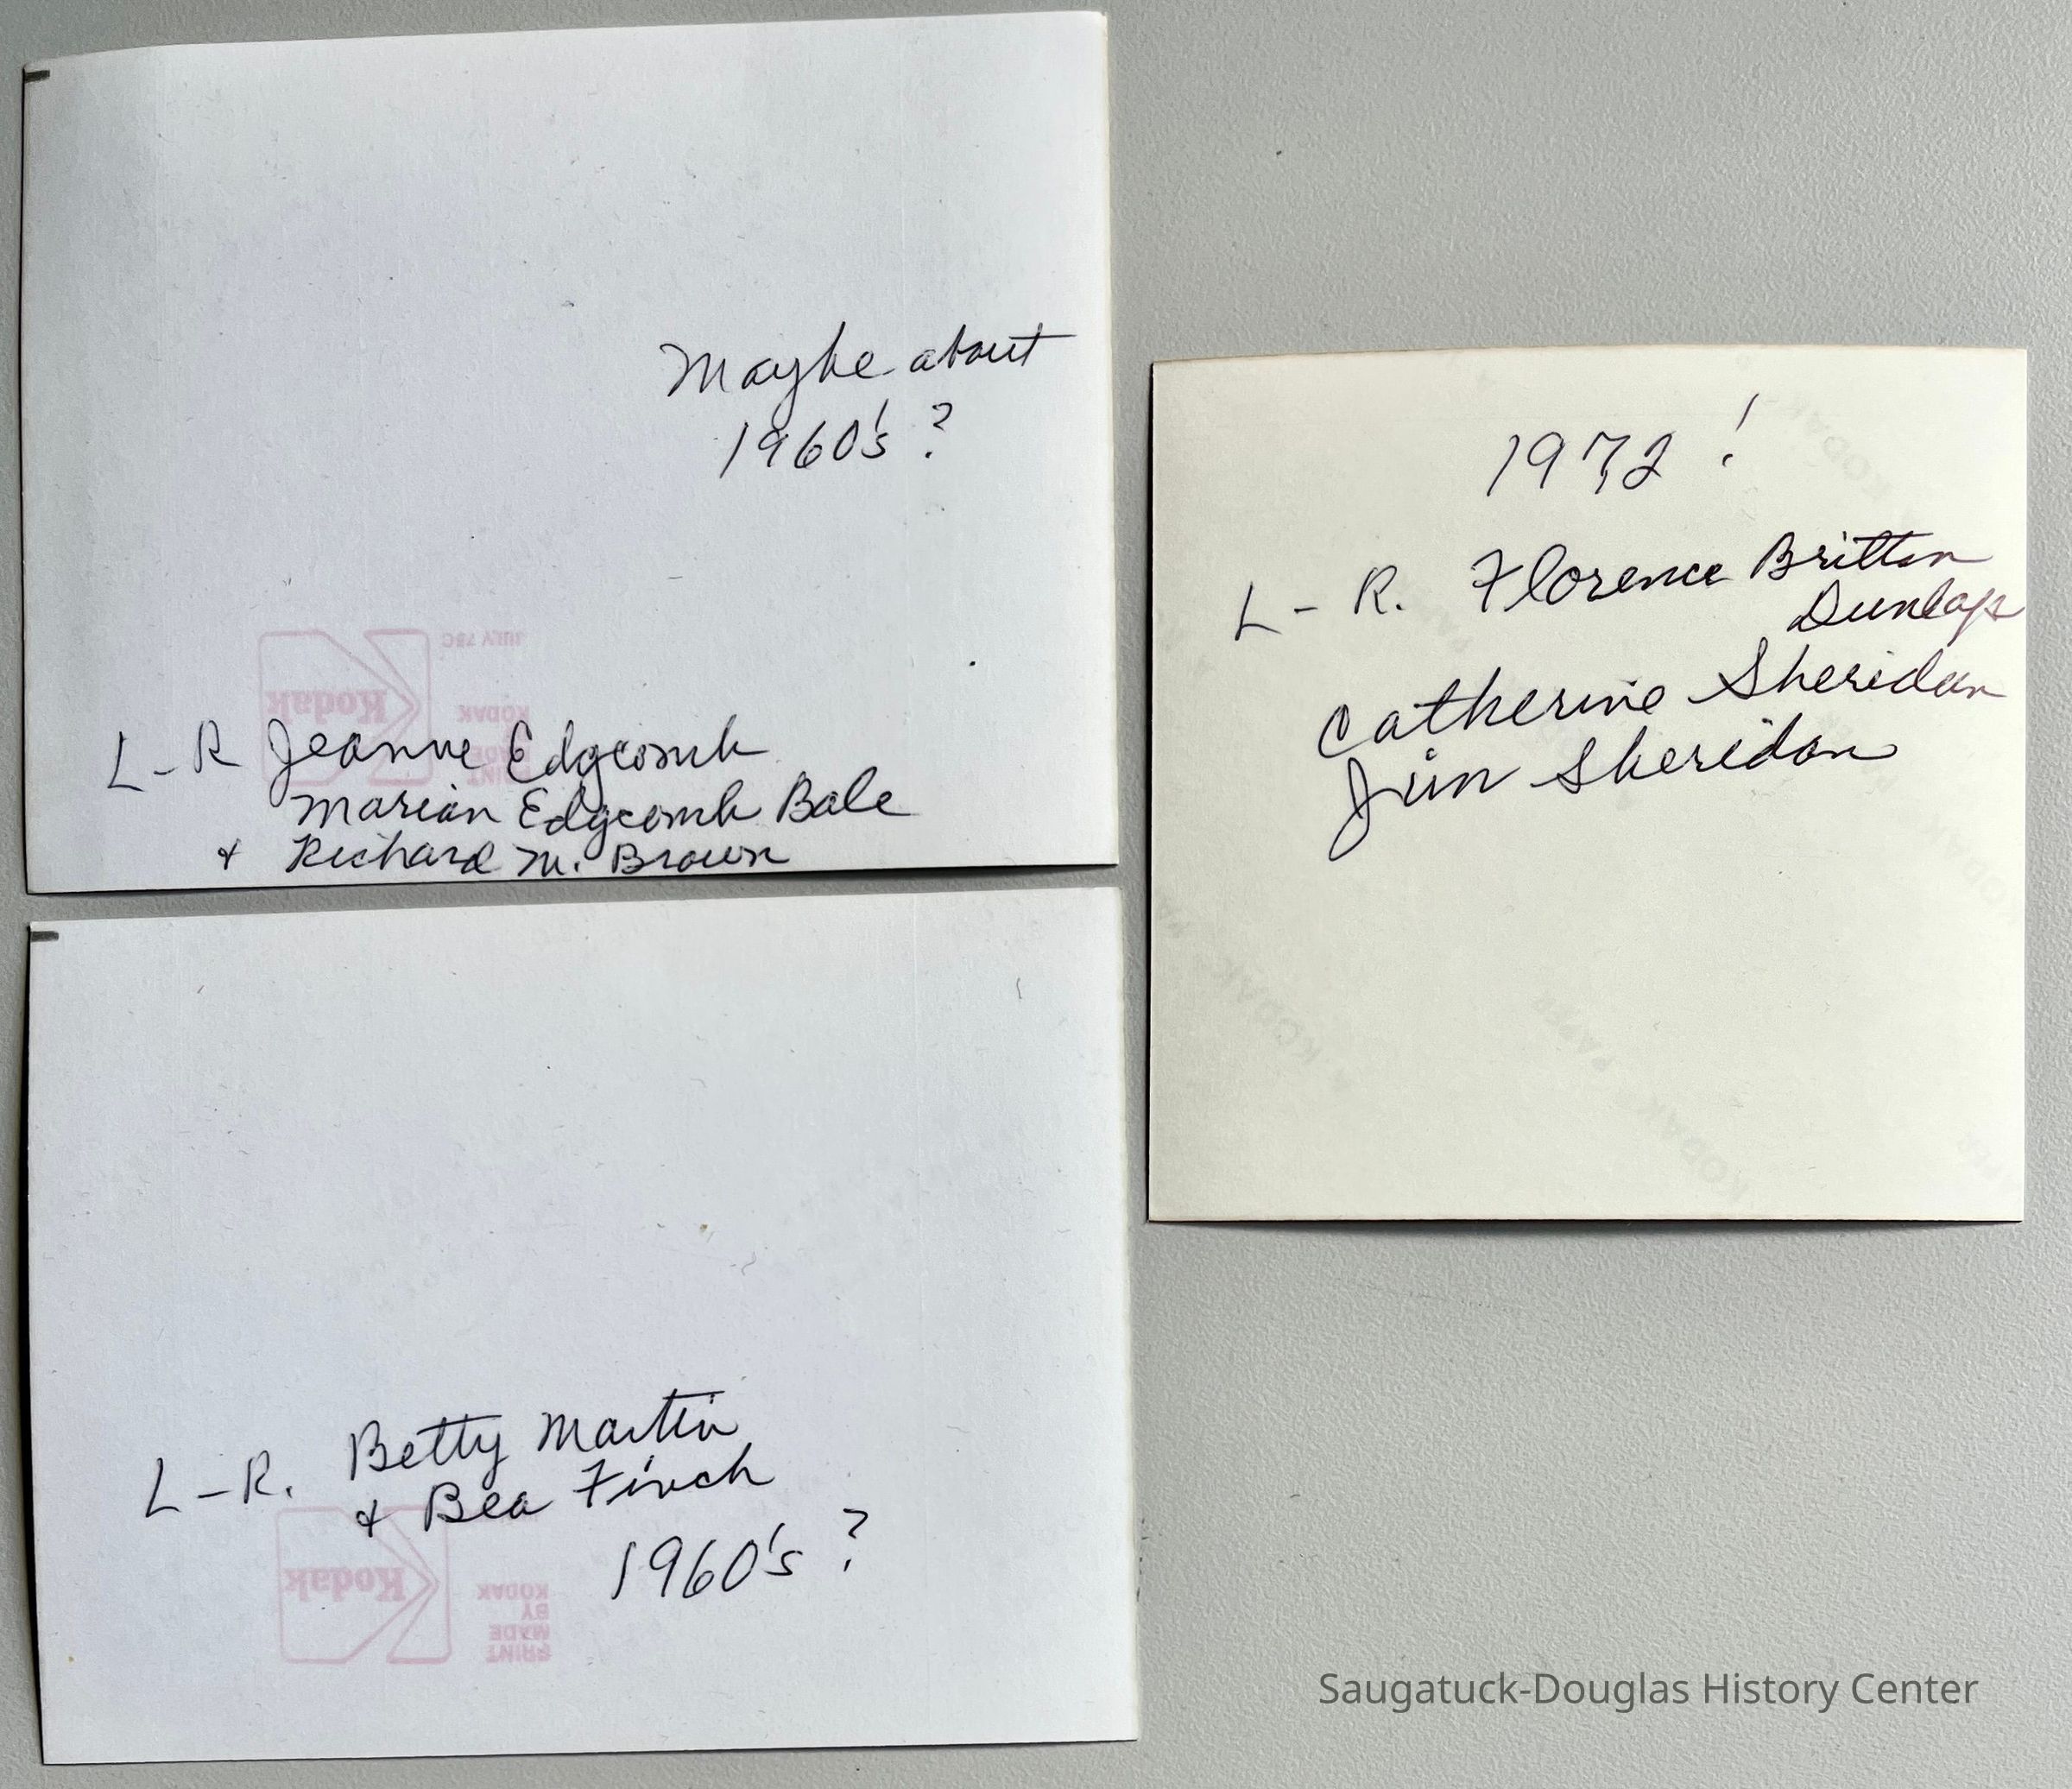 Maybe about
1960's ?
JULY 78C
Kodak
KODAK
L-R Jeanne Edgcomb
Marian Edgcomb Bale
& Richard M. Brown
1972 !
L-R. Florence Britton
Dunlap
Catherine Sheridan
Jim Sheridan
KODAK
PAPER
KODAK
KODAK
L-R. Betty Martin
& Bea Finch
1960's ?
Kodak
KODAK
BY
MADE
PRINT
Saugatuck-Douglas History Center